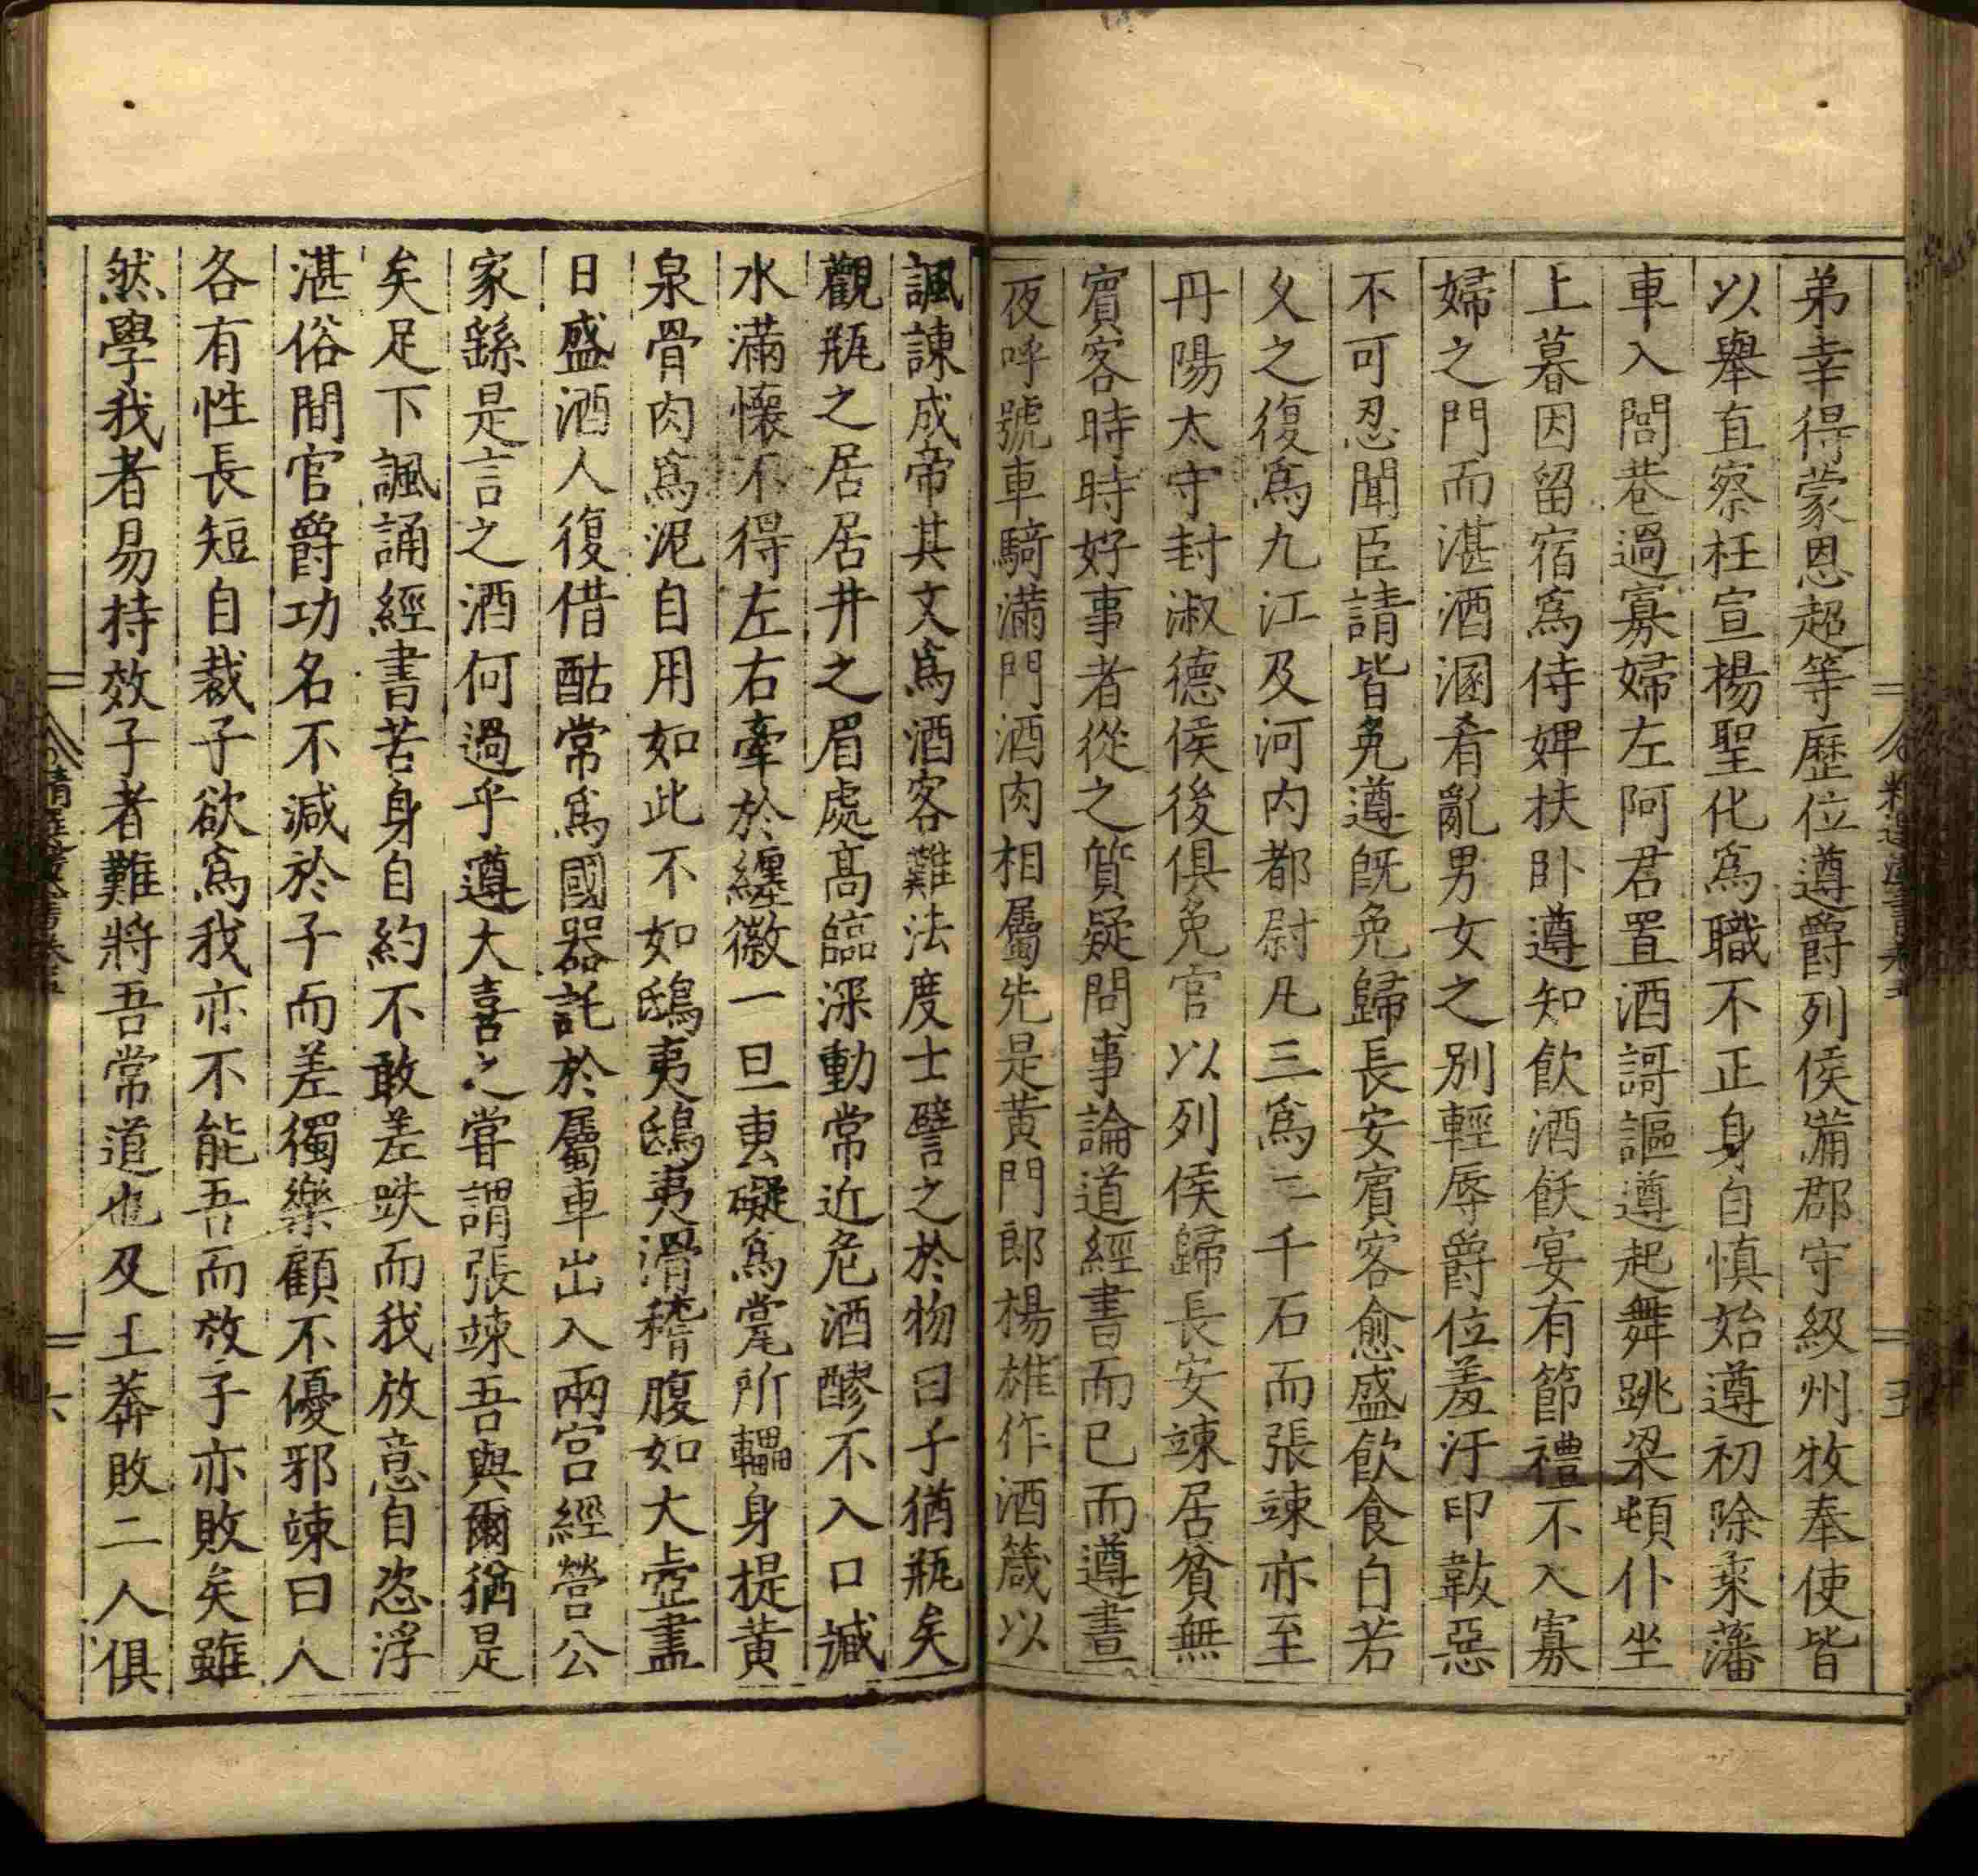 弟幸得蒙恩超等歷位遵爵列侯備郡守級州牧奉使皆
以舉直察枉宣揚聖化爲職不正身自慎始遵初除乘藩
車入閭巷過寡婦左阿君置酒謌謳遵起舞跳梁頓仆坐
上暮因留宿爲侍婢扶卧遵知飲酒飫宴有節禮不入寡
婦之門而湛酒溷肴亂男女之別輕辱爵位羞汙印韍惡
不可忍聞臣請皆免遵旣免歸長安賓客愈盛飲食自若
久之復爲九江及河内都尉凡三爲二千石而張竦亦至
丹陽太守封淑德侯後俱免官以列侯歸長安竦居貧無
賓客時時好事者從之質疑問事論道經書而已而遵晝
夜呼號車騎滿門酒肉相屬先是黃門郎楊雄作酒箴以
諷諫成帝其文爲酒客難法度士譬之於物曰子猶瓶矣
觀瓶之居居井之眉處高臨深動常近危酒醪不入口臧
水滿懷不得左右牽於纆徽一旦叀礙爲瓽所轠身提黃
泉骨肉爲泥自用如此不如鴟夷鴟夷滑稽腹如大壺盡
日盛酒人復借酤常爲國器託於屬車出入兩宮經營公
家繇是言之酒何過乎遵大喜之嘗謂張竦吾與爾猶是
矣足下諷誦經書苦身自約不敢差跌而我放意自恣浮
湛俗間官爵功名不減於子而差獨樂顧不優邪竦曰人
各有性長短自裁子欲爲我亦不能吾而效子亦敗矣雖
然學我者易持效子者難將吾常道也及王莽敗二人俱
六